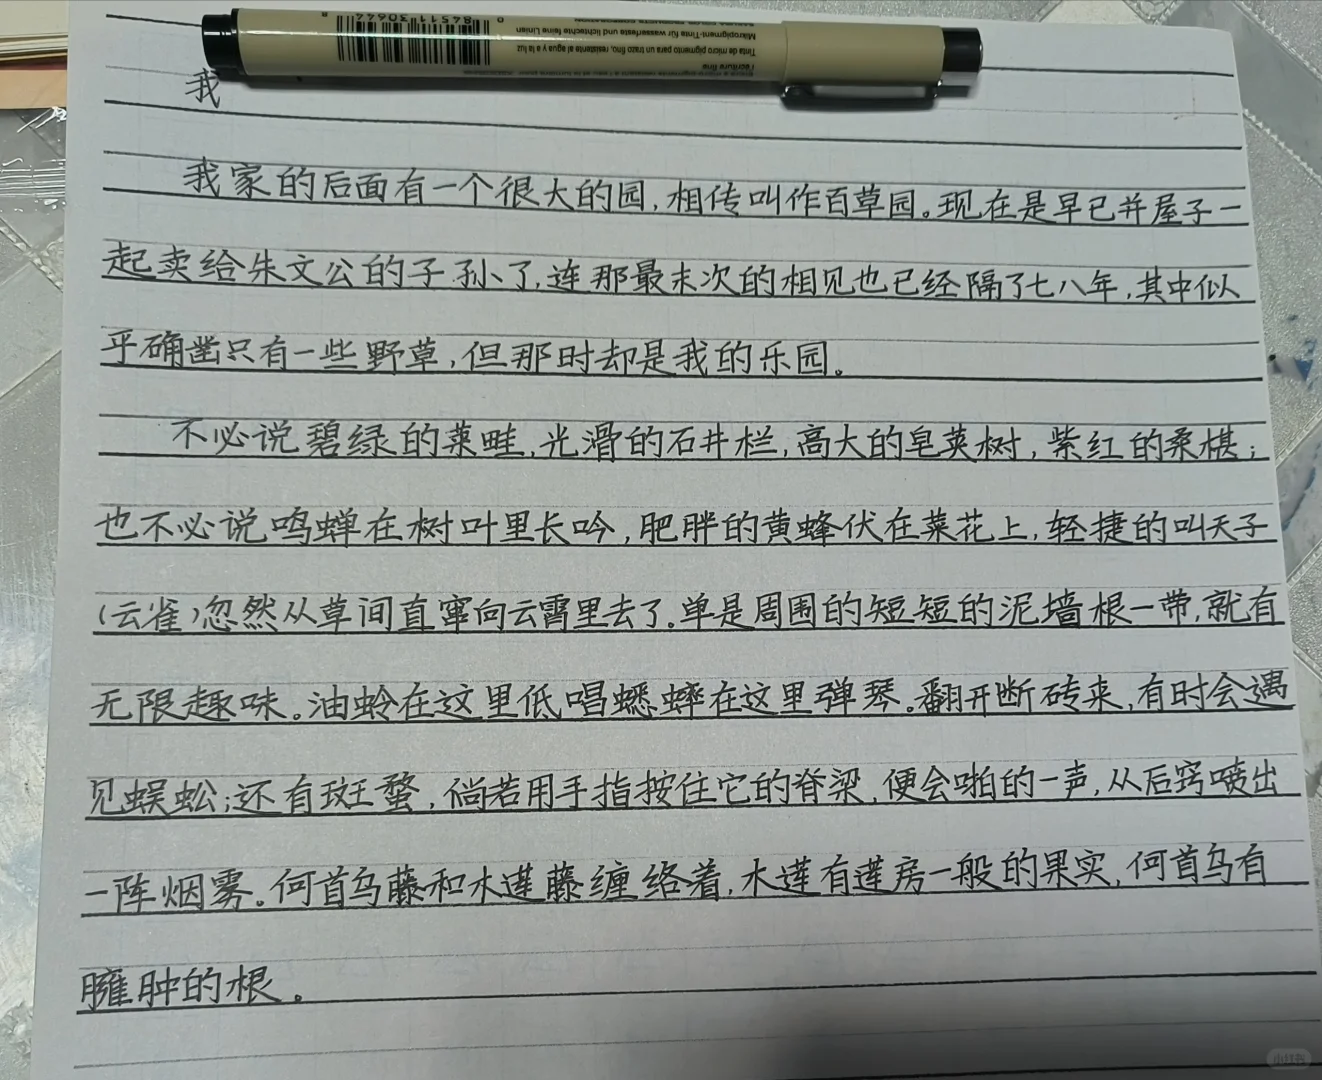 8 84511 30644 0
Mikropigment-Tinte für wasserfeste und lichtechte feine Linien
Tinta de micro pigmento para un trazo fino, resistente al agua y a la luz
l'écriture fine
我
我家的后面有一个很大的园,相传叫作百草园。现在是早已并屋子一
起卖给朱文公的子孙了,连那最末次的相见也已经隔了七八年,其中似
乎确凿只有一些野草,但那时却是我的乐园。
不必说碧绿的菜畦,光滑的石井栏,高大的皂荚树,紫红的桑椹;
也不必说鸣蝉在树叶里长吟,肥胖的黄蜂伏在菜花上,轻捷的叫天子
(云雀)忽然从草间直窜向云霄里去了。单是周围的短短的泥墙根一带,就有
无限趣味。油蛉在这里低唱蟋蟀在这里弹琴。翻开断砖来,有时会遇
见蜈蚣;还有斑蝥,倘若用手指按住它的脊梁,便会啪的一声,从后窍喷出
一阵烟雾。何首乌藤和木莲藤缠络着,木莲有莲房一般的果实,何首乌有
臃肿的根。
小红书